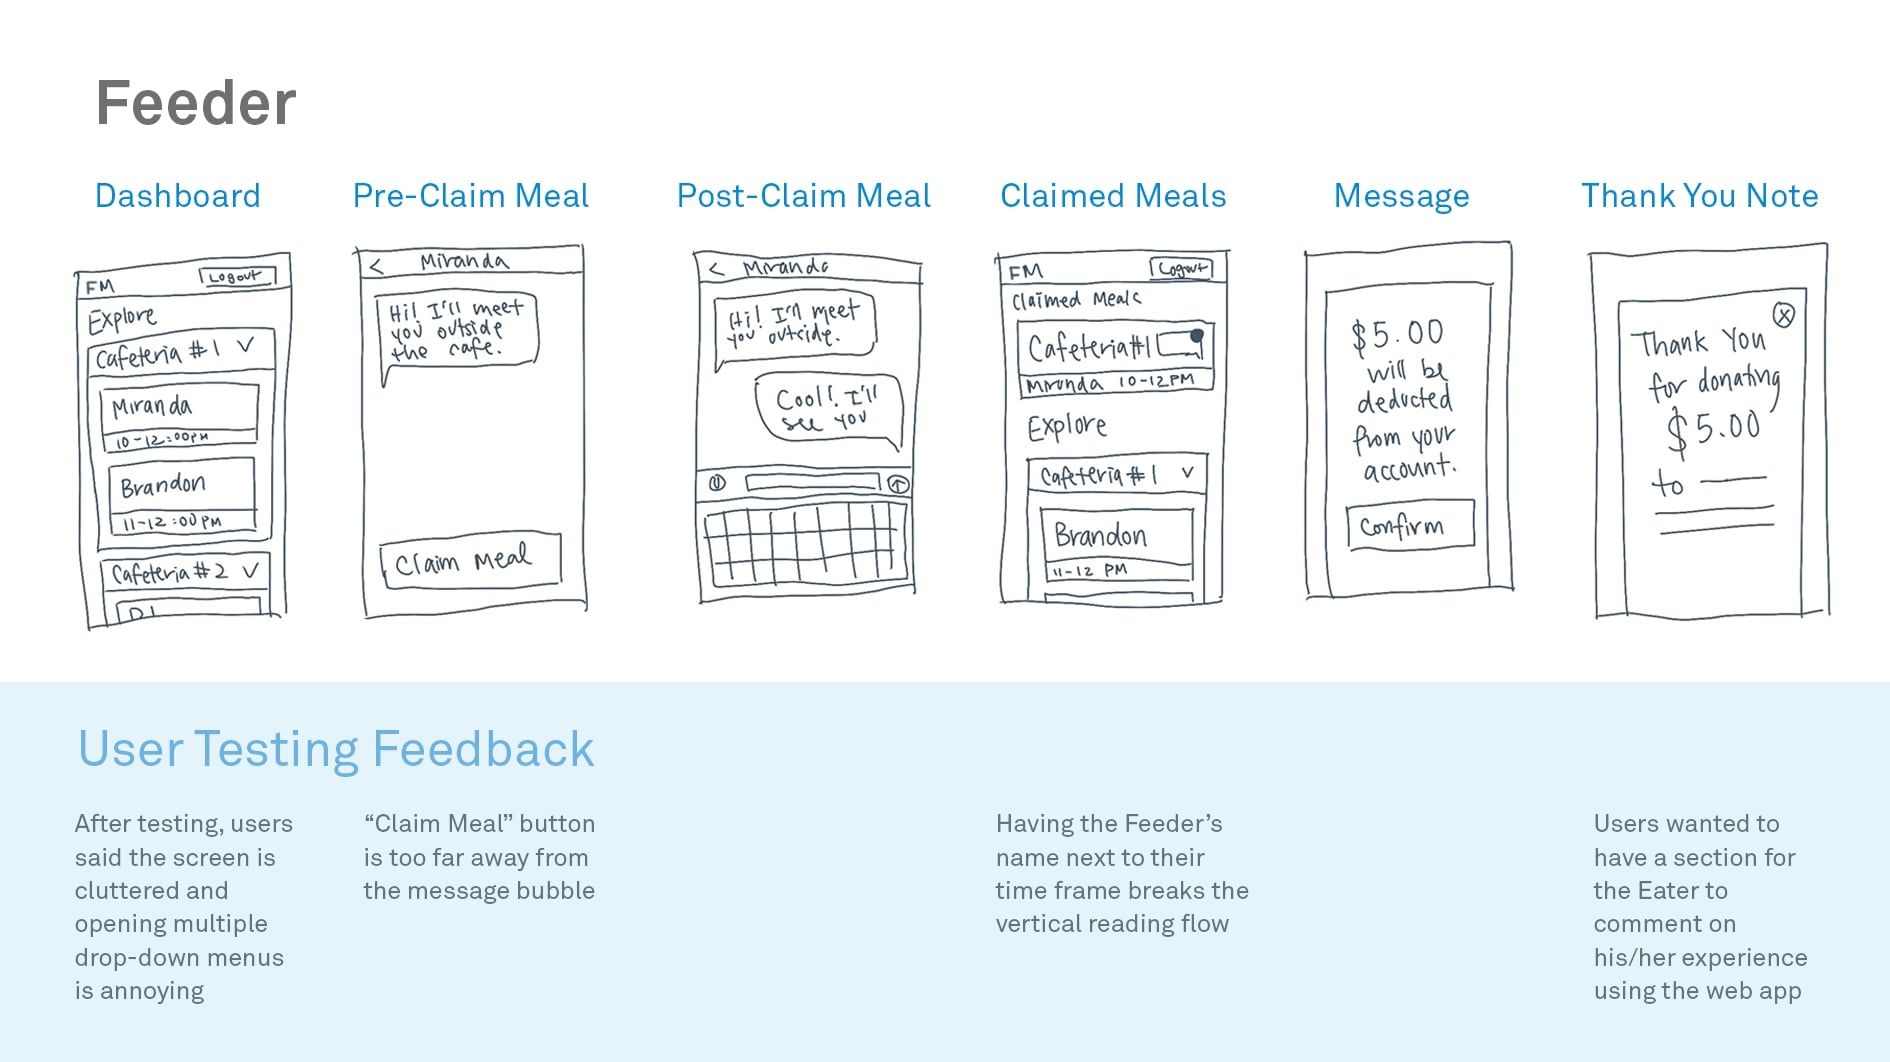 Feeder
Dashboard
Pre-Claim Meal
Post-Claim Meal
Claimed Meals
Message
Thank You Note
FM
Logout
Explore
Cafeteria #1
Miranda
10-12:00PM
Brandon
11-12:00PM
Cafeteria #2
<
Miranda
Hi! I'll meet
you outside
the cafe.
Claim Meal
<
Miranda
Hi! I'll meet
you outside.
Cool! I'll
see you
FM
Logout
Claimed Meals
Cafeteria #1
Miranda 10-12PM
Explore
Cafeteria #1
Brandon
11-12 PM
$5.00
will be
deducted
from your
account.
Confirm
X
Thank You
for donating
$5.00
to
User Testing Feedback
After testing, users
said the screen is
cluttered and
opening multiple
drop-down menus
is annoying
“Claim Meal” button
is too far away from
the message bubble
Having the Feeder’s
name next to their
time frame breaks the
vertical reading flow
Users wanted to
have a section for
the Eater to
comment on
his/her experience
using the web app